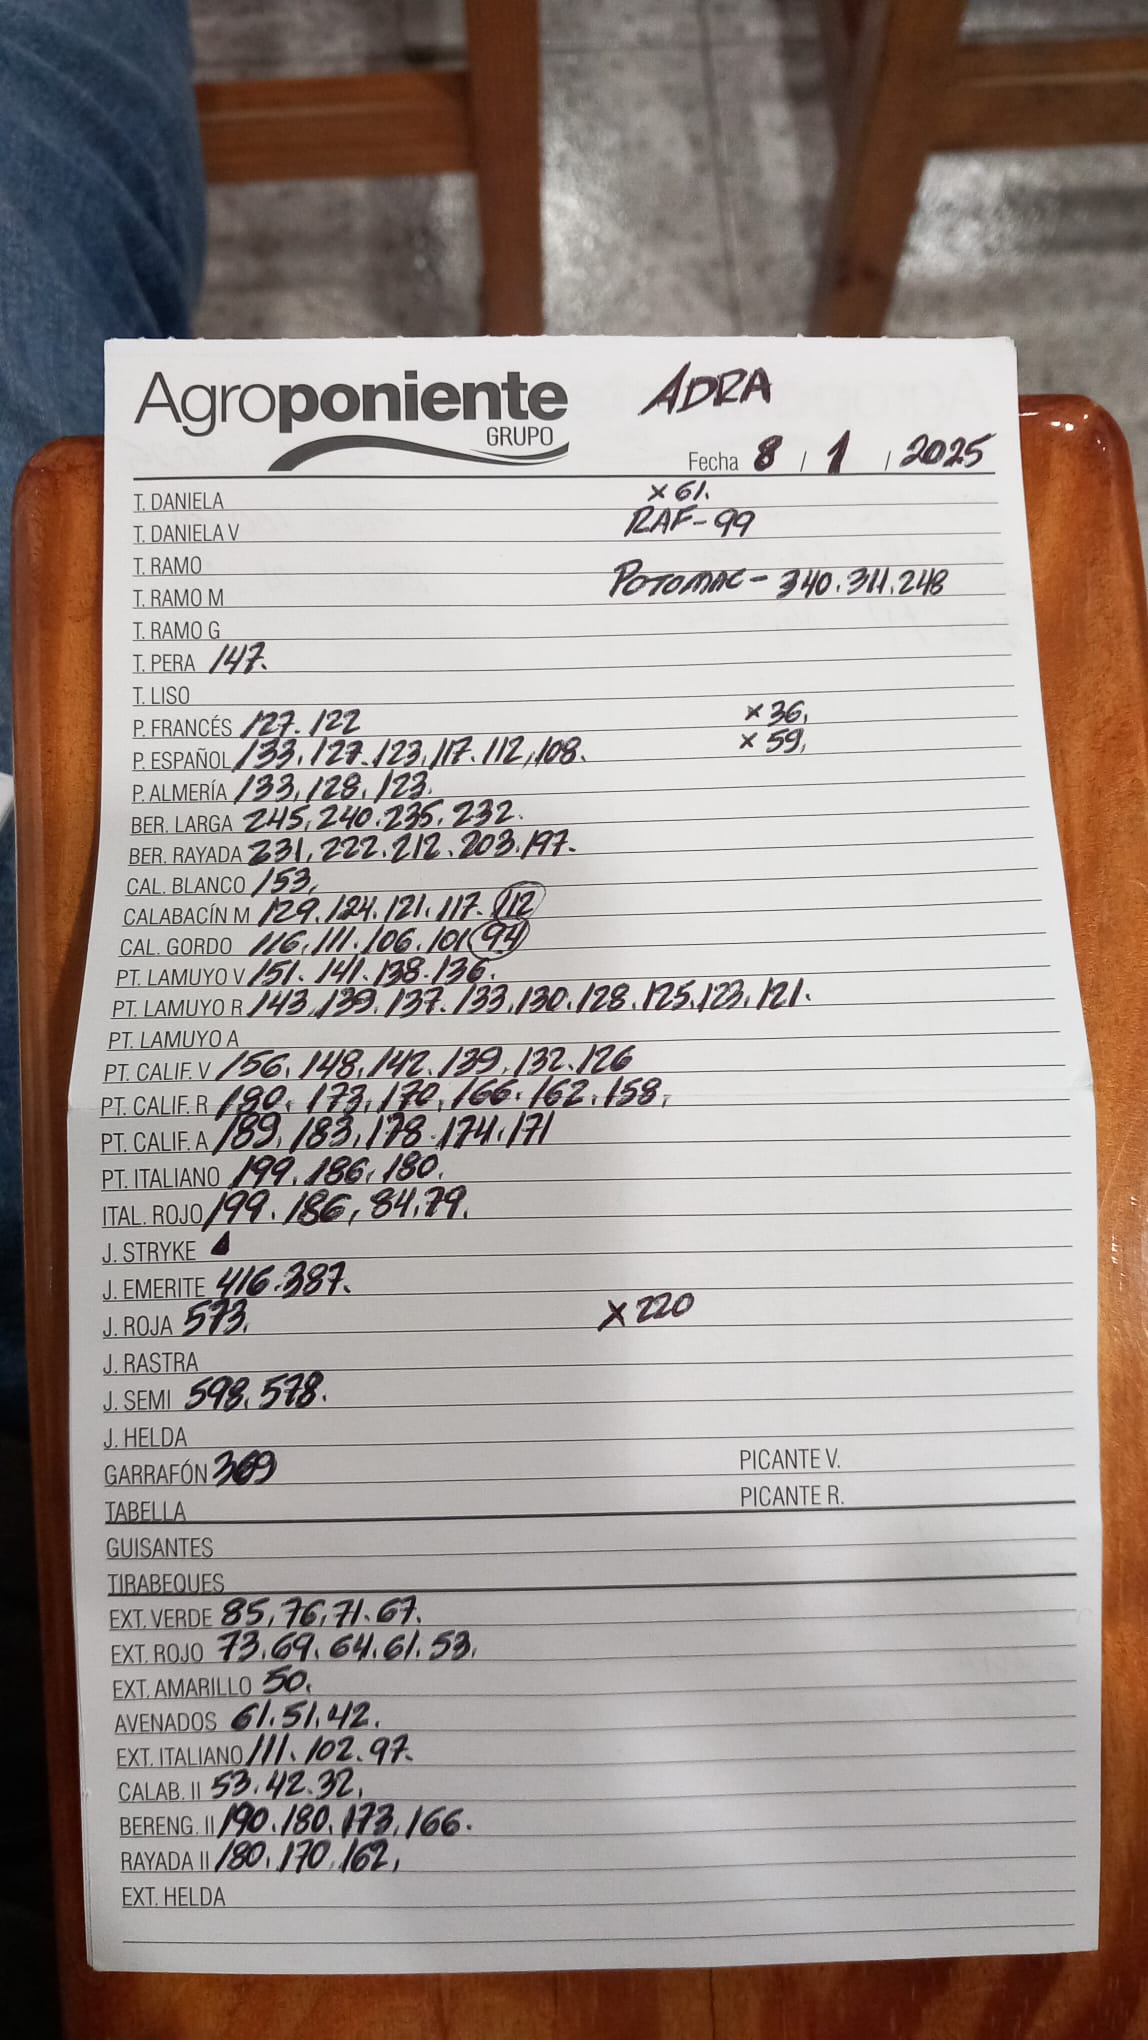 Agroponiente ADRA
GRUPO
Fecha 8 / 1 / 2025
T. DANIELA x 61.
T. DANIELA V RAF - 99
T. RAMO
T. RAMO M POTOMAC - 340. 311. 248
T. RAMO G
T. PERA 147.
T. LISO
P. FRANCÉS 127. 122 x 36,
P. ESPAÑOL 133, 127. 123, 117. 112, 108. x 59,
P. ALMERÍA 133, 128, 123.
BER. LARGA 245, 240. 235. 232.
BER. RAYADA 231, 222. 212. 203. 197.
CAL. BLANCO 153,
CALABACÍN M 129. 124. 121. 117. 112
CAL. GORDO 116, 111. 106. 101 94
PT. LAMUYO V 151. 141. 138. 136.
PT. LAMUYO R 143, 139. 137. 133, 130. 128. 125. 123, 121.
PT. LAMUYO A
PT. CALIF. V 156, 148, 142. 139, 132. 126
PT. CALIF. R 180. 173, 170, 166. 162. 158,
PT. CALIF. A 189, 183, 178. 174. 171
PT. ITALIANO 199. 186, 180.
ITAL. ROJO 199. 186, 84. 79.
J. STRYKE
J. EMERITE 416. 387.
J. ROJA 573, X 220
J. RASTRA
J. SEMI 598, 578.
J. HELDA
GARRAFÓN 369 PICANTE V.
TABELLA PICANTE R.
GUISANTES
TIRABEQUES
EXT. VERDE 85, 76, 71. 67.
EXT. ROJO 73. 69. 64. 61. 53,
EXT. AMARILLO 50,
AVENADOS 61. 51, 42.
EXT. ITALIANO 111. 102. 97.
CALAB. II 53. 42. 32,
BERENG. II 190. 180. 173, 166.
RAYADA II 180, 170, 162,
EXT. HELDA